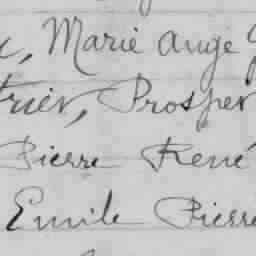 Marie Ange
Prosper
Pierre René
Emile Pierre